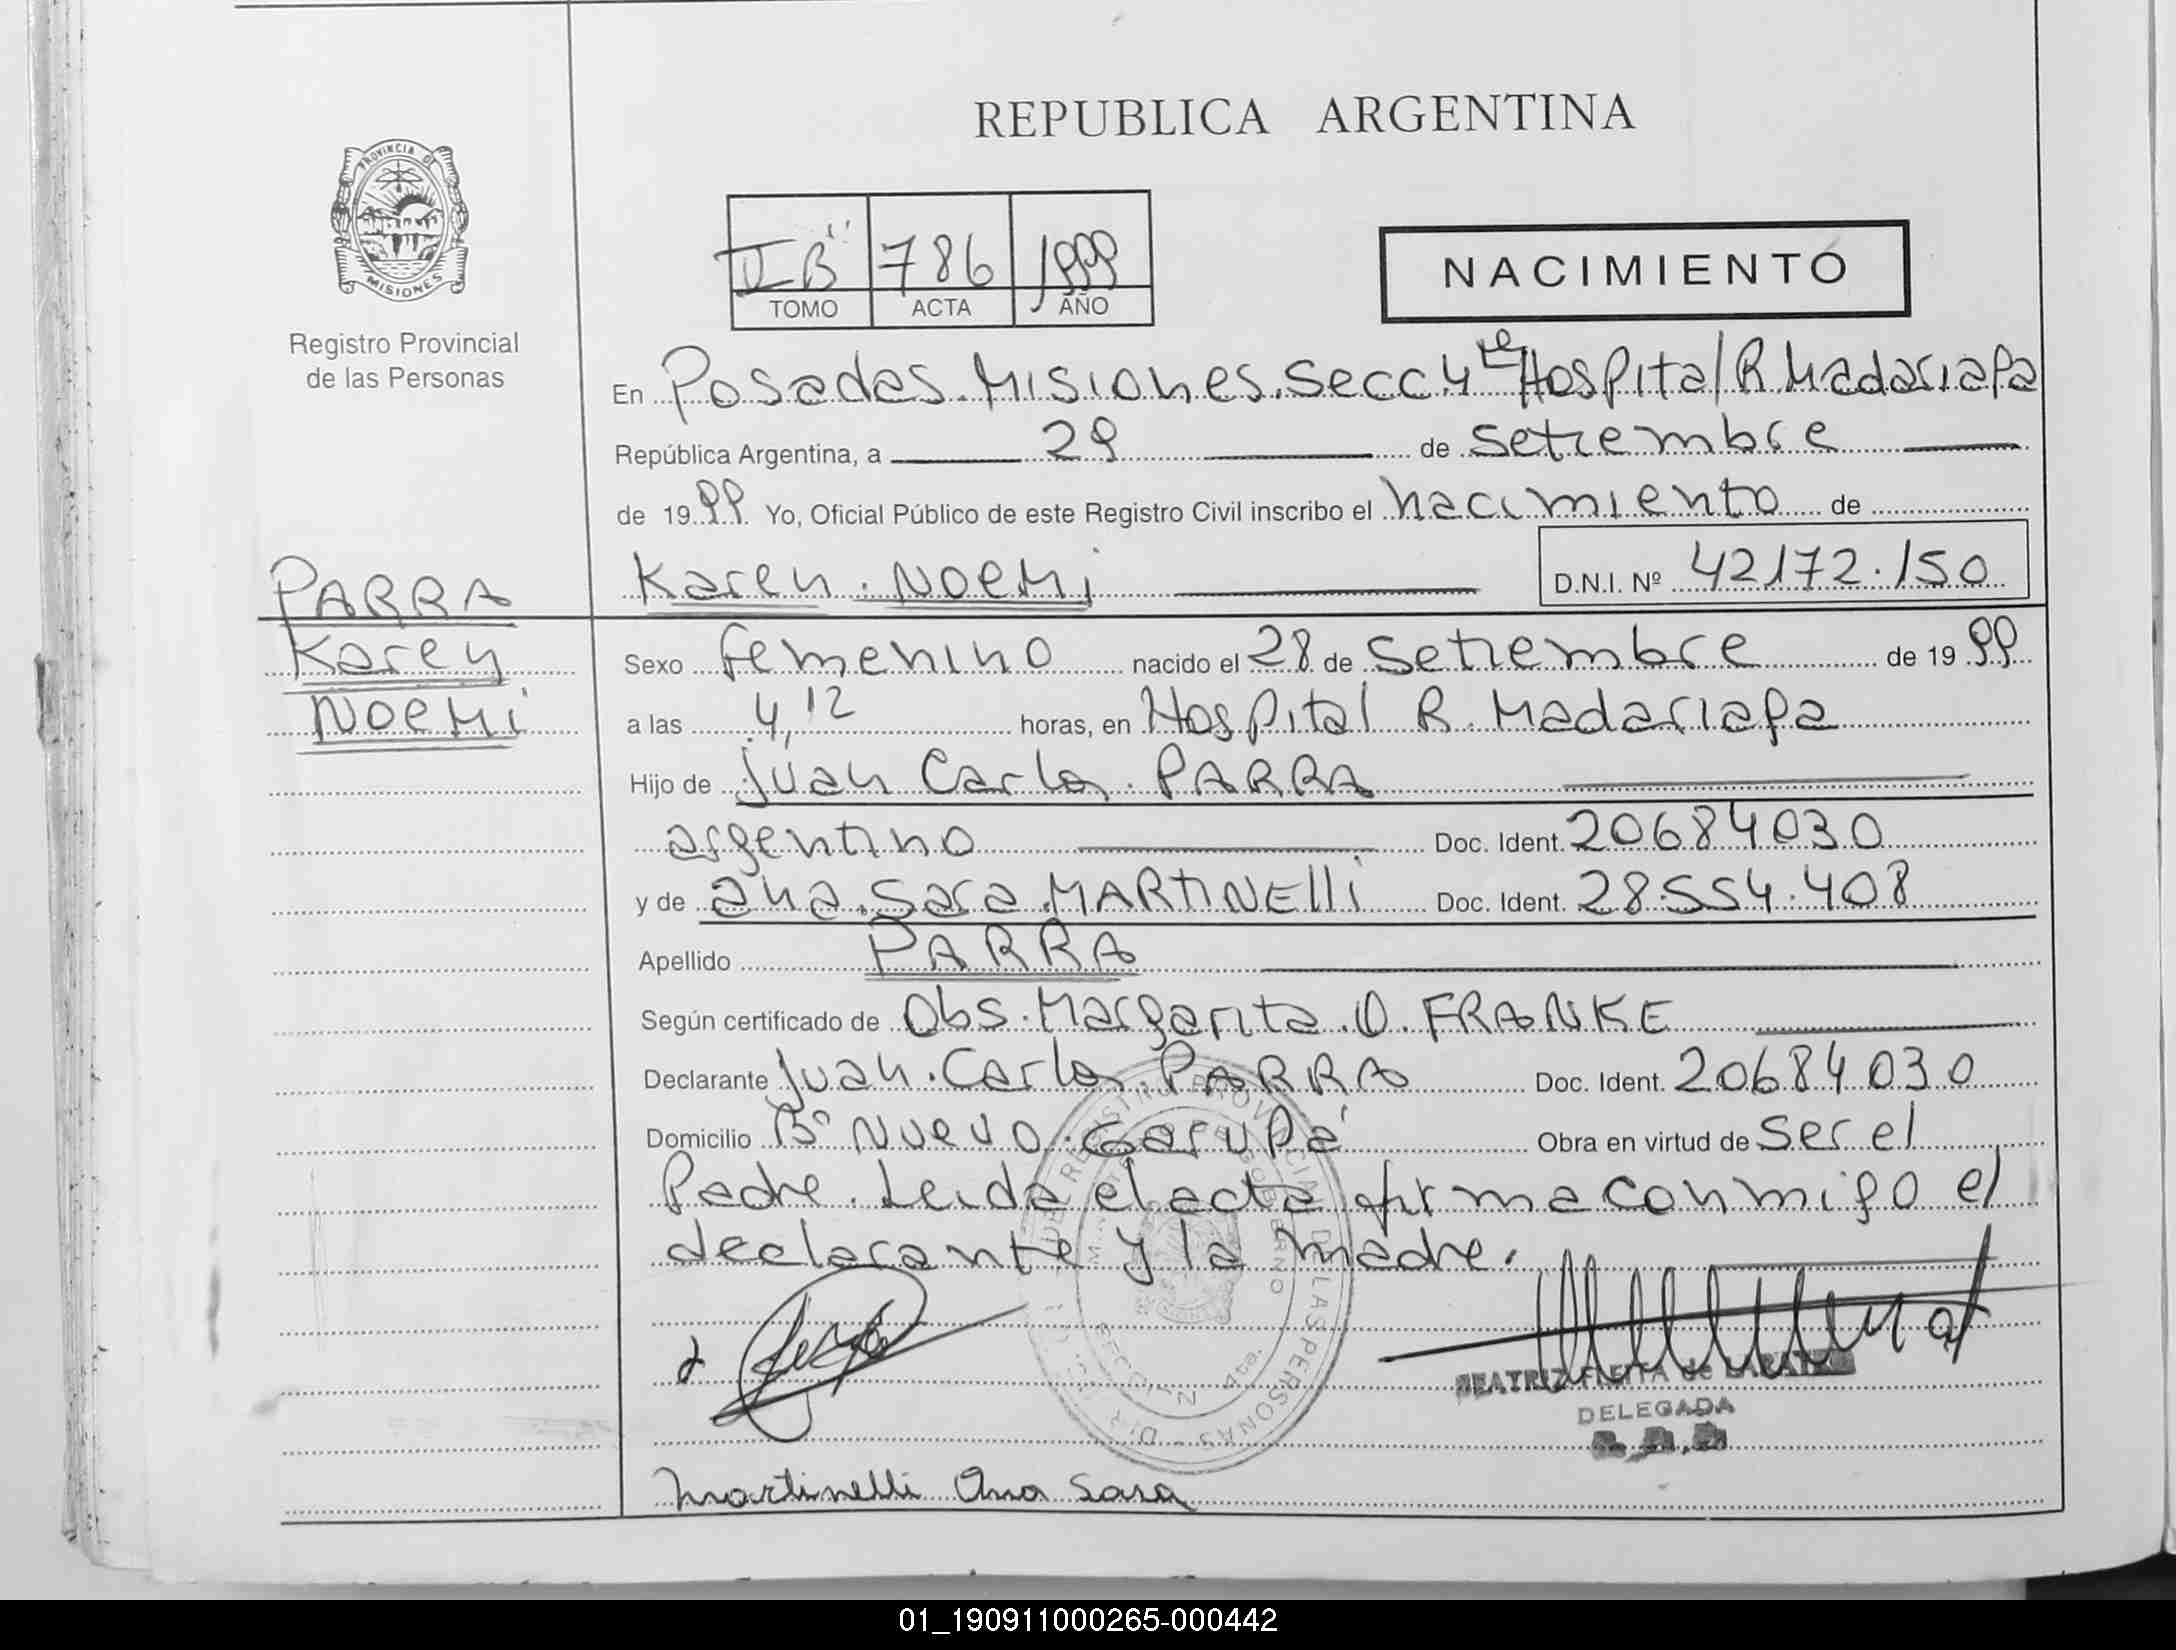 REPUBLICA ARGENTINA
PROVINCIA DE
MISIONES
Registro Provincial
de las Personas
II "B" 786 1999
TOMO ACTA AÑO
NACIMIENTO
En Posadas. Misiones. Secc 4ta Hospital R Madariaga
República Argentina, a 29 de Setiembre
de 1999. Yo, Oficial Público de este Registro Civil inscribo el nacimiento de
Karen. Noemi D.N.I. Nº 42172.150
PARRA
Karen
Noemi
Sexo femenino nacido el 28 de Setiembre de 1999
a las 4,12 horas, en Hospital R. Madariaga
Hijo de Juan Carlos. PARRA
argentino Doc. Ident. 20684030
y de ana. Sara. MARTINElli Doc. Ident. 28.554.408
Apellido PARRA
Según certificado de Obs. Margarita. O. FRANKE
Declarante Juan. Carlos. PARRA Doc. Ident. 20684030
Domicilio Bº Nuevo. Garupá Obra en virtud de Ser el
Padre. Leida el acta firma conmigo el
declarante y la madre.
BEATRIZ
DELEGADA
Martinelli Ana Sara
01_190911000265-000442